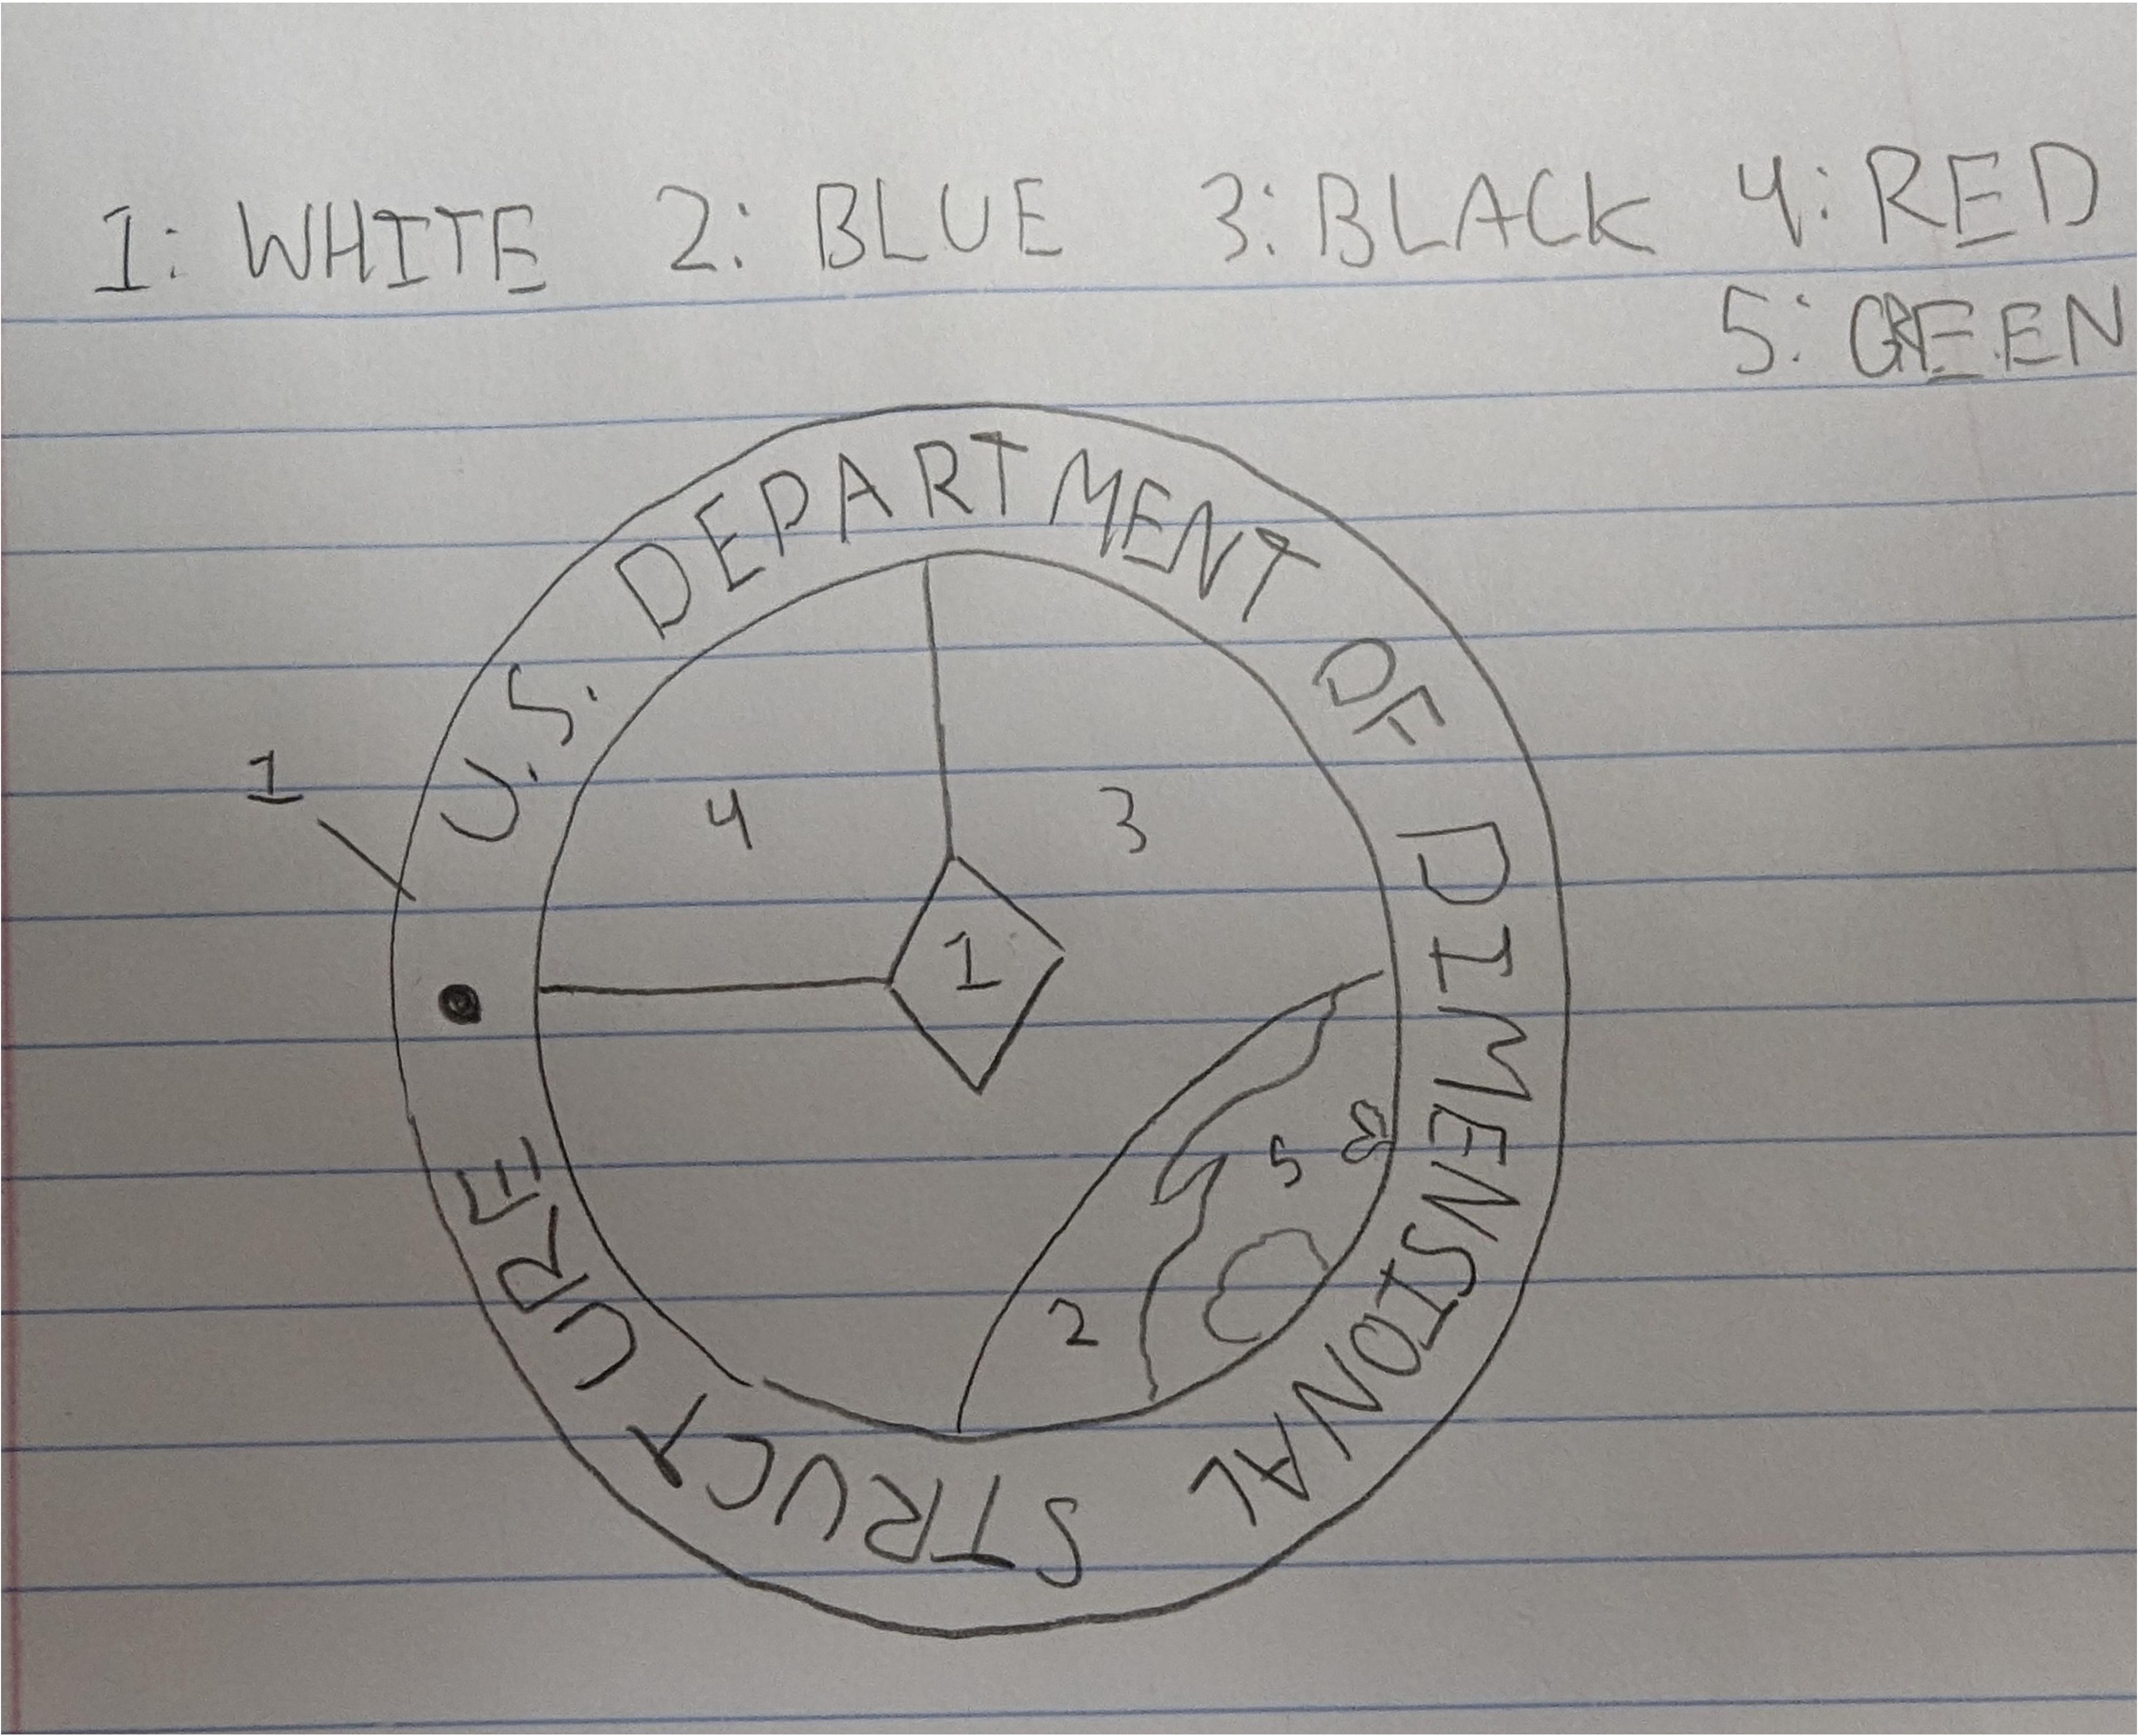 1: WHITE 2: BLUE 3: BLACK 4: RED
5: GREEN
U.S. DEPARTMENT OF DIMENSIONAL STRUCTURE
1
4
3
1
5
2